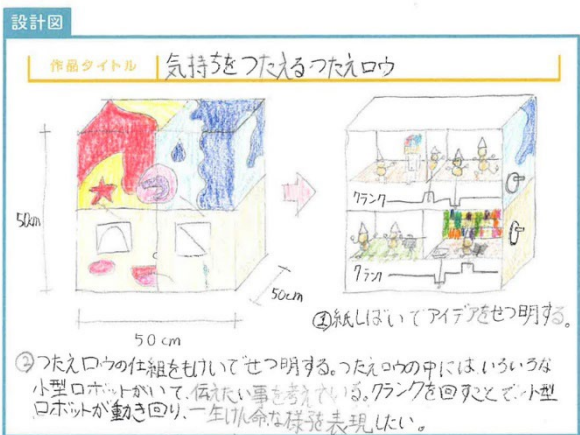 設計図
作品タイトル 気持ちをつたえるつたえロウ
つ
50cm
50cm
50cm
クランク
クランク
①紙しばいでアイデアをせつ明する。
②つたえロウの仕組をもけいでせつ明する。つたえロウの中にはいろいろな
小型ロボットがいて、伝えたい事を考えている。クランクを回すことで、小型
ロボットが動き回り、一生けん命な様子を表現したい。